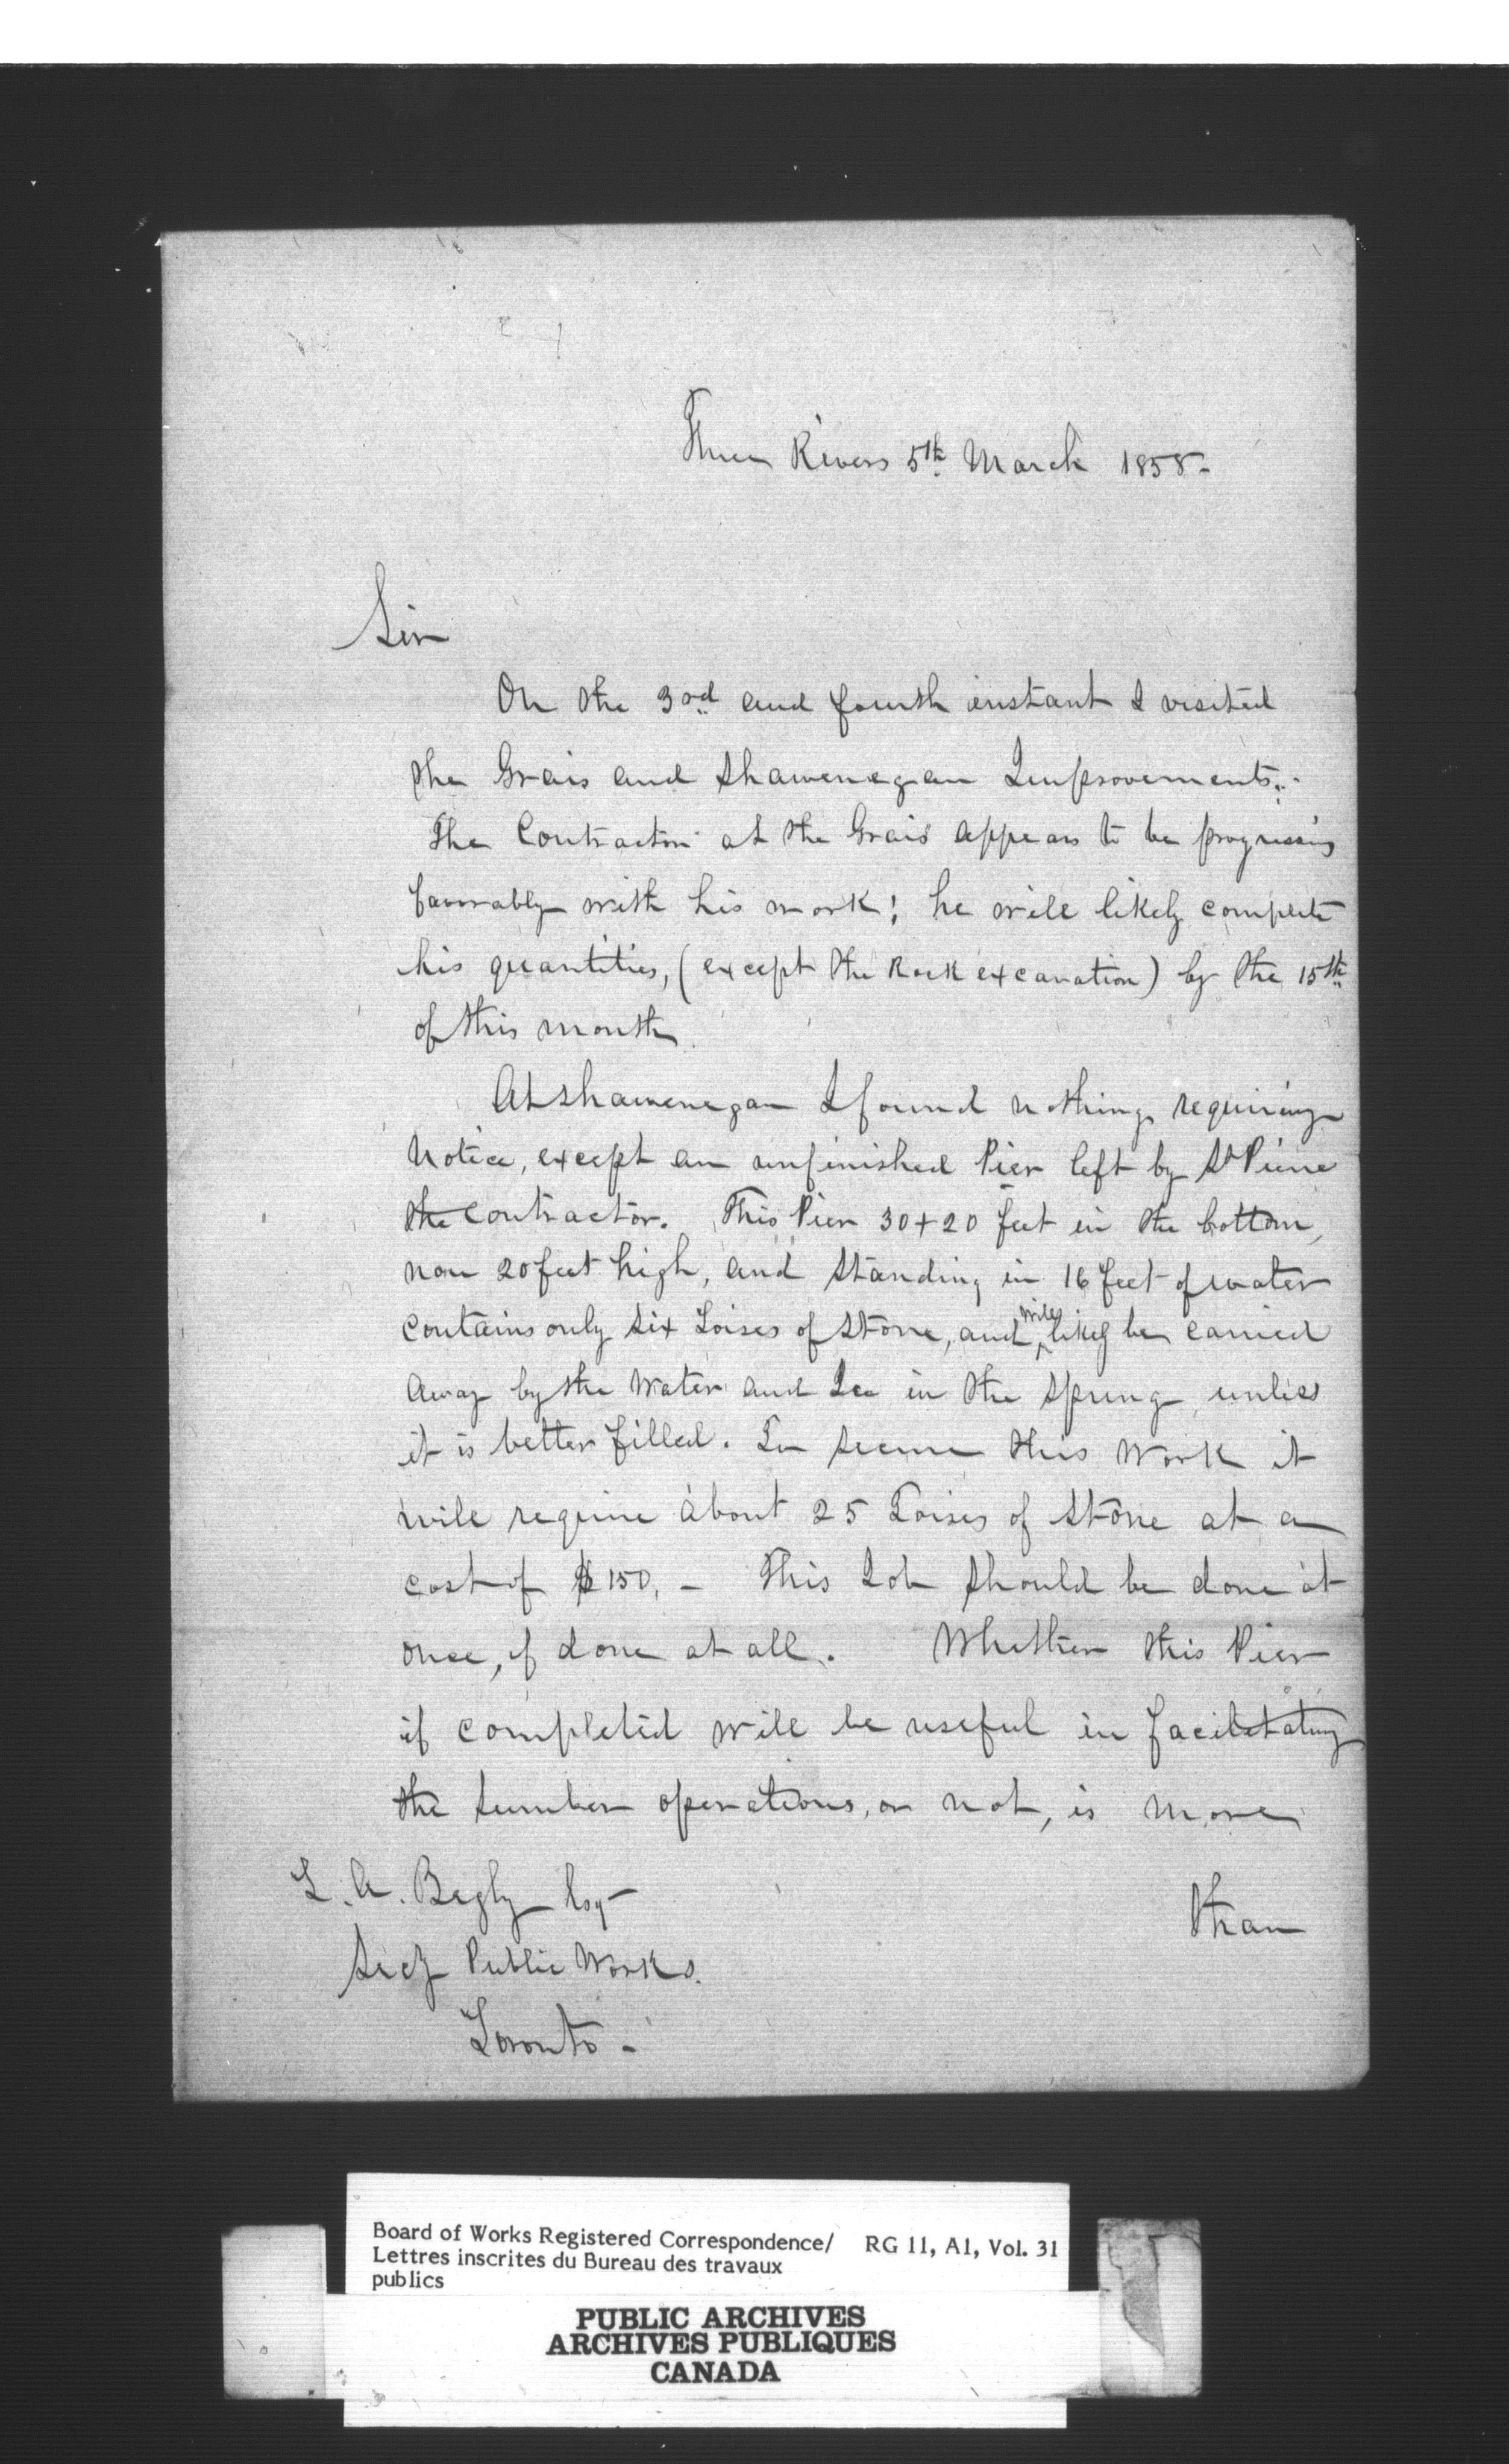 Three Rivers 5th March 1858-
Sir
On the 3rd and fourth instant I visited
the Grais and Shawenegan Improvements.-
The Contractor at the Grais appears to be progressing
favorably with his work; he will likely complete
his quantities, (except the Rock excavation) by the 15th
of this month.
At Shawenegan I found nothing requiring
notice, except an unfinished Pier left by St Pierre
the contractor. This Pier 30+20 feet in the bottom,
now 20 feet high, and standing in 16 feet of water
contains only six Toises of Stone, and will likely be carried
away by the Water and Ice in the Spring, unless
it is better filled. To secure this Work it
will require about 25 Toises of Stone at a
cost of $150, - This Job should be done at
once, if done at all. Whether this Pier
if completed will be useful in facilitating
the Lumber operations, or not, is more
than
T. A. Begly Esq
Secy Public Works.
Toronto -
Board of Works Registered Correspondence/ RG 11, A1, Vol. 31
Lettres inscrites du Bureau des travaux
publics
PUBLIC ARCHIVES
ARCHIVES PUBLIQUES
CANADA